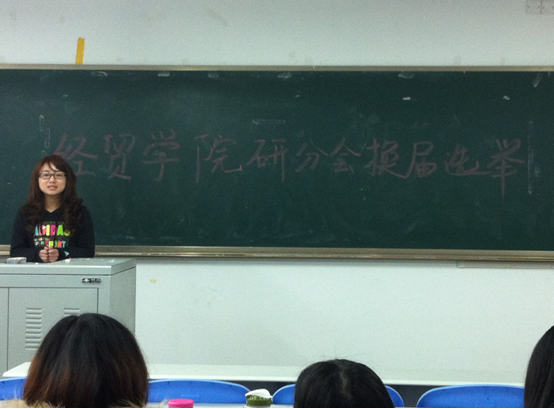 经贸学院研分会换届选举